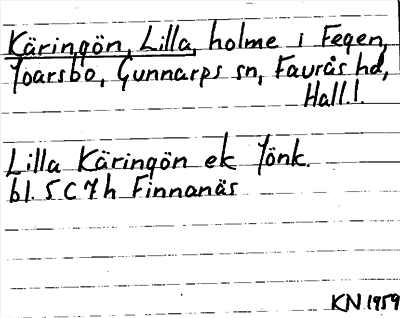 Käringön, Lilla, holme i Fegen,
Joarsbo, Gunnarps sn, Faurås hd,
Hall.l.
Lilla Käringön ek Jönk.
bl. 5C7h Finnanäs
KN 1959